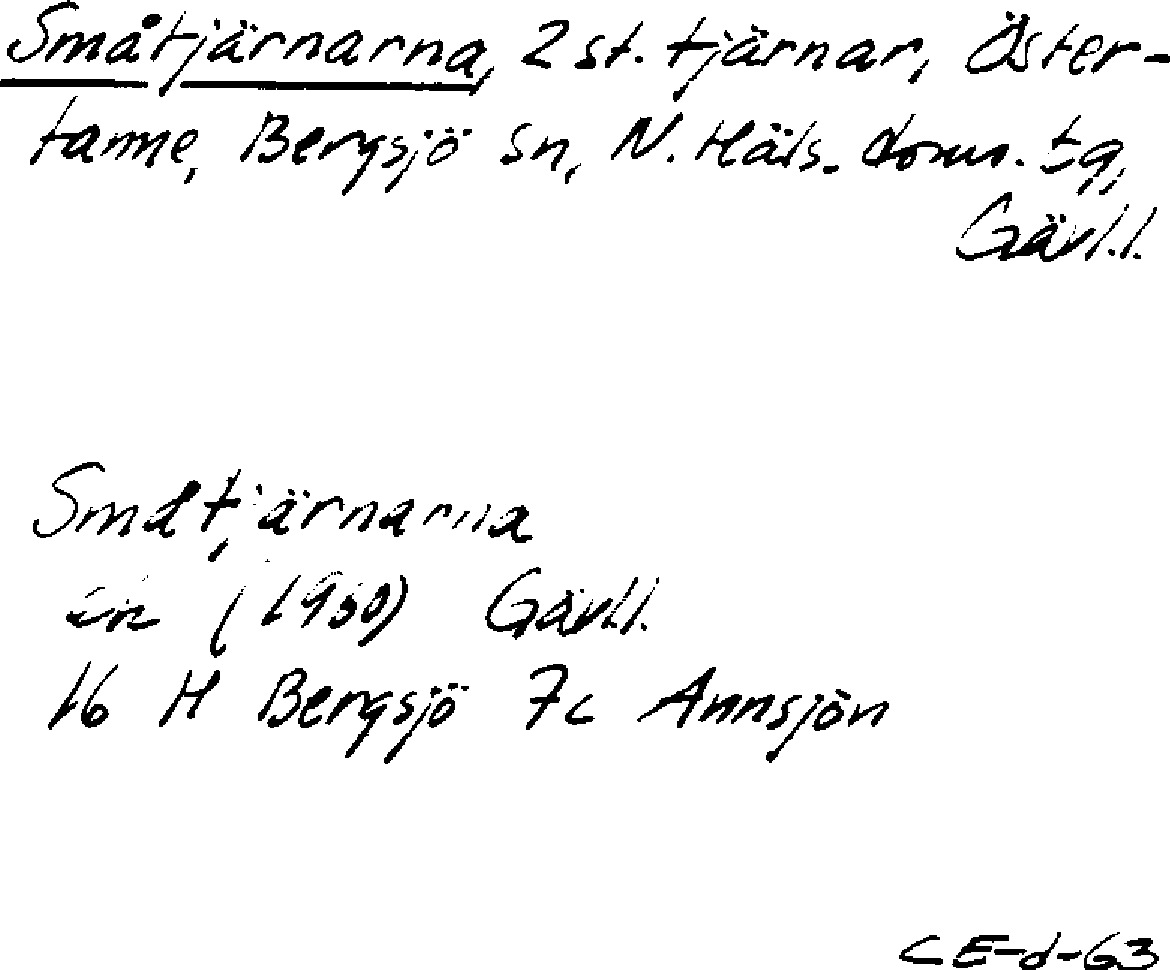 Småtjärnarna, 2 st. tjärnar, Öster-
tanne, Bergsjö sn, N. Häls. doms. tg,
Gävl.l.
Småtjärnarna
ek (1960) Gävl.l.
16 H Bergsjö 7c Annsjön
CE-d-63